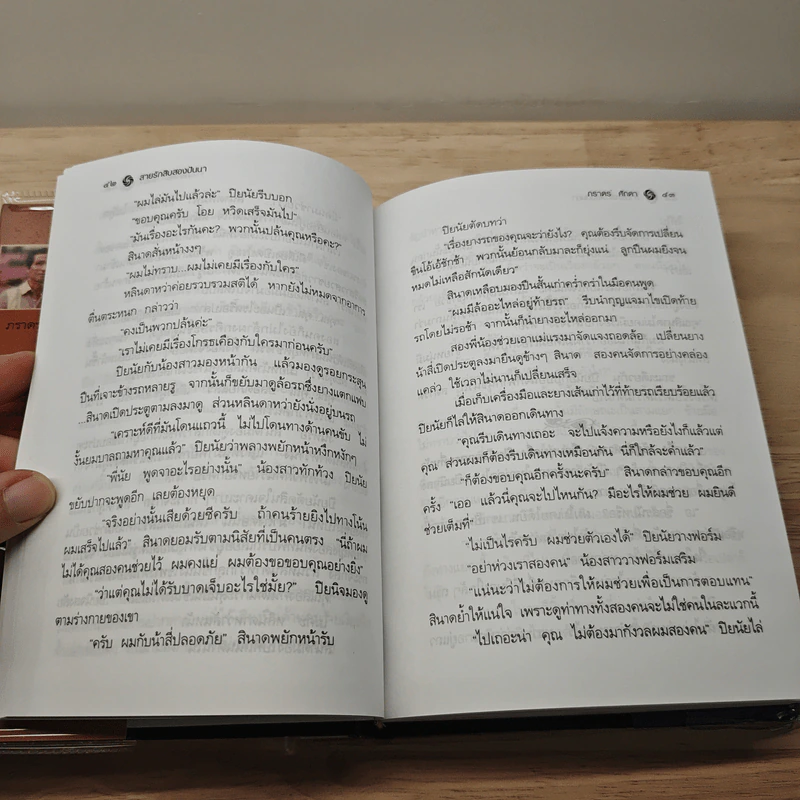 ๔๒ สายรักสิบสองปันนา
"ผมไล่มันไปแล้วล่ะ" ปิยนัยรีบบอก
"ขอบคุณครับ โอย หวิดเสร็จมันไป"
"มันเรื่องอะไรกันคะ? พวกนั้นปล้นคุณหรือคะ?"
สินาดสั่นหน้างงๆ
"ผมไม่ทราบ...ผมไม่เคยมีเรื่องกับใคร"
หลินดาหว่าค่อยรวบรวมสติได้ หากยังไม่หมดจากอาการ
ตื่นตระหนก กล่าวว่า
"คงเป็นพวกปล้นค่ะ"
"เราไม่เคยมีเรื่องโกรธเคืองกับใครมาก่อนครับ"
ปิยนัยกับน้องสาวมองหน้ากัน แล้วมองดูรอยกระสุน
ปืนที่เจาะข้างรถหลายรู จากนั้นก็ขยับมาดูล้อรถซึ่งยางแตกแฟบ
...สินาดเปิดประตูตามลงมาดู ส่วนหลินดาหว่ายังนั่งอยู่บนรถ
"เคราะห์ดีที่มันโดนแถวนี้ ไม่ไปโดนทางด้านคนขับ ไม่
งั้นยมบาลถามหาคุณแล้ว" ปิยนัยว่าพลางพยักหน้าหงึกหงักๆ
"พี่นัย พูดจาอะไรอย่างนั้น" น้องสาวทักท้วง ปิยนัย
ขยับปากจะพูดอีก เลยต้องหยุด
"จริงอย่างนั้นเสียด้วยซีครับ ถ้าคนร้ายยิงไปทางโน้น
ผมเสร็จไปแล้ว" สินาดยอมรับตามนิสัยที่เป็นคนตรง "นี่ถ้าผม
ไม่ได้คุณสองคนช่วยไว้ ผมคงแย่ ผมต้องขอขอบคุณอย่างยิ่ง"
"ว่าแต่คุณไม่ได้รับบาดเจ็บอะไรใช่มั้ย?" ปิยนิจมองดู
ตามร่างกายของเขา
"ครับ ผมกับน้าสี่ปลอดภัย" สินาดพยักหน้ารับ
ภราดร ศักดา ๔๓
ปิยนัยตัดบทว่า
"เรื่องยางรถของคุณจะว่ายังไง? คุณต้องรีบจัดการเปลี่ยน
ขืนโอ้เอ้ชักช้า พวกนั้นย้อนกลับมาละก็ยุ่งแน่ ลูกปืนผมยิงจน
หมดไม่เหลือสักนัดเดียว"
สินาดเหลือบมองปืนสั้นเก่าคร่ำคร่าในมือคนพูด
"ผมมีล้ออะไหล่อยู่ท้ายรถ" รีบนำกุญแจมาไขเปิดท้าย
รถโดยไม่รอช้า จากนั้นก็นำยางอะไหล่ออกมา
สองพี่น้องช่วยเอาแม่แรงมาจัดแจงถอดล้อ เปลี่ยนยาง
น้าสี่เปิดประตูลงมายืนดูข้างๆ สินาด สองคนจัดการอย่างคล่อง
แคล่ว ใช้เวลาไม่นานก็เปลี่ยนเสร็จ
เมื่อเก็บเครื่องมือและยางเส้นเก่าไว้ที่ท้ายรถเรียบร้อยแล้ว
ปิยนัยก็ไล่ให้สินาดออกเดินทาง
"คุณรีบเดินทางเถอะ จะไปแจ้งความหรือยังไงก็แล้วแต่
คุณ ส่วนผมก็ต้องรีบเดินทางเหมือนกัน นี่ก็ใกล้จะค่ำแล้ว"
"ก็ต้องขอบคุณอีกครั้งนะครับ" สินาดกล่าวขอบคุณอีก
ครั้ง "เออ แล้วนี่คุณจะไปไหนกัน? มีอะไรให้ผมช่วย ผมยินดี
ช่วยเต็มที่"
"ไม่เป็นไรครับ ผมช่วยตัวเองได้" ปิยนัยวางฟอร์ม
"อย่าห่วงเราสองคน" น้องสาววางฟอร์มเสริม
"แน่นะว่าไม่ต้องการให้ผมช่วยเพื่อเป็นการตอบแทน"
สินาดย้ำให้แน่ใจ เพราะดูท่าทางทั้งสองคนจะไม่ใช่คนในละแวกนี้
"ไปเถอะน่า คุณ ไม่ต้องมากังวลผมสองคน" ปิยนัยไล่